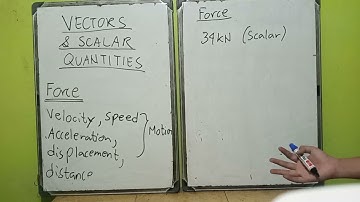 VECTORS
& SCALAR
QUANTITIES
Force
Velocity, speed
Acceleration,
displacement,
distance
Motion
Force
34kN (Scalar)